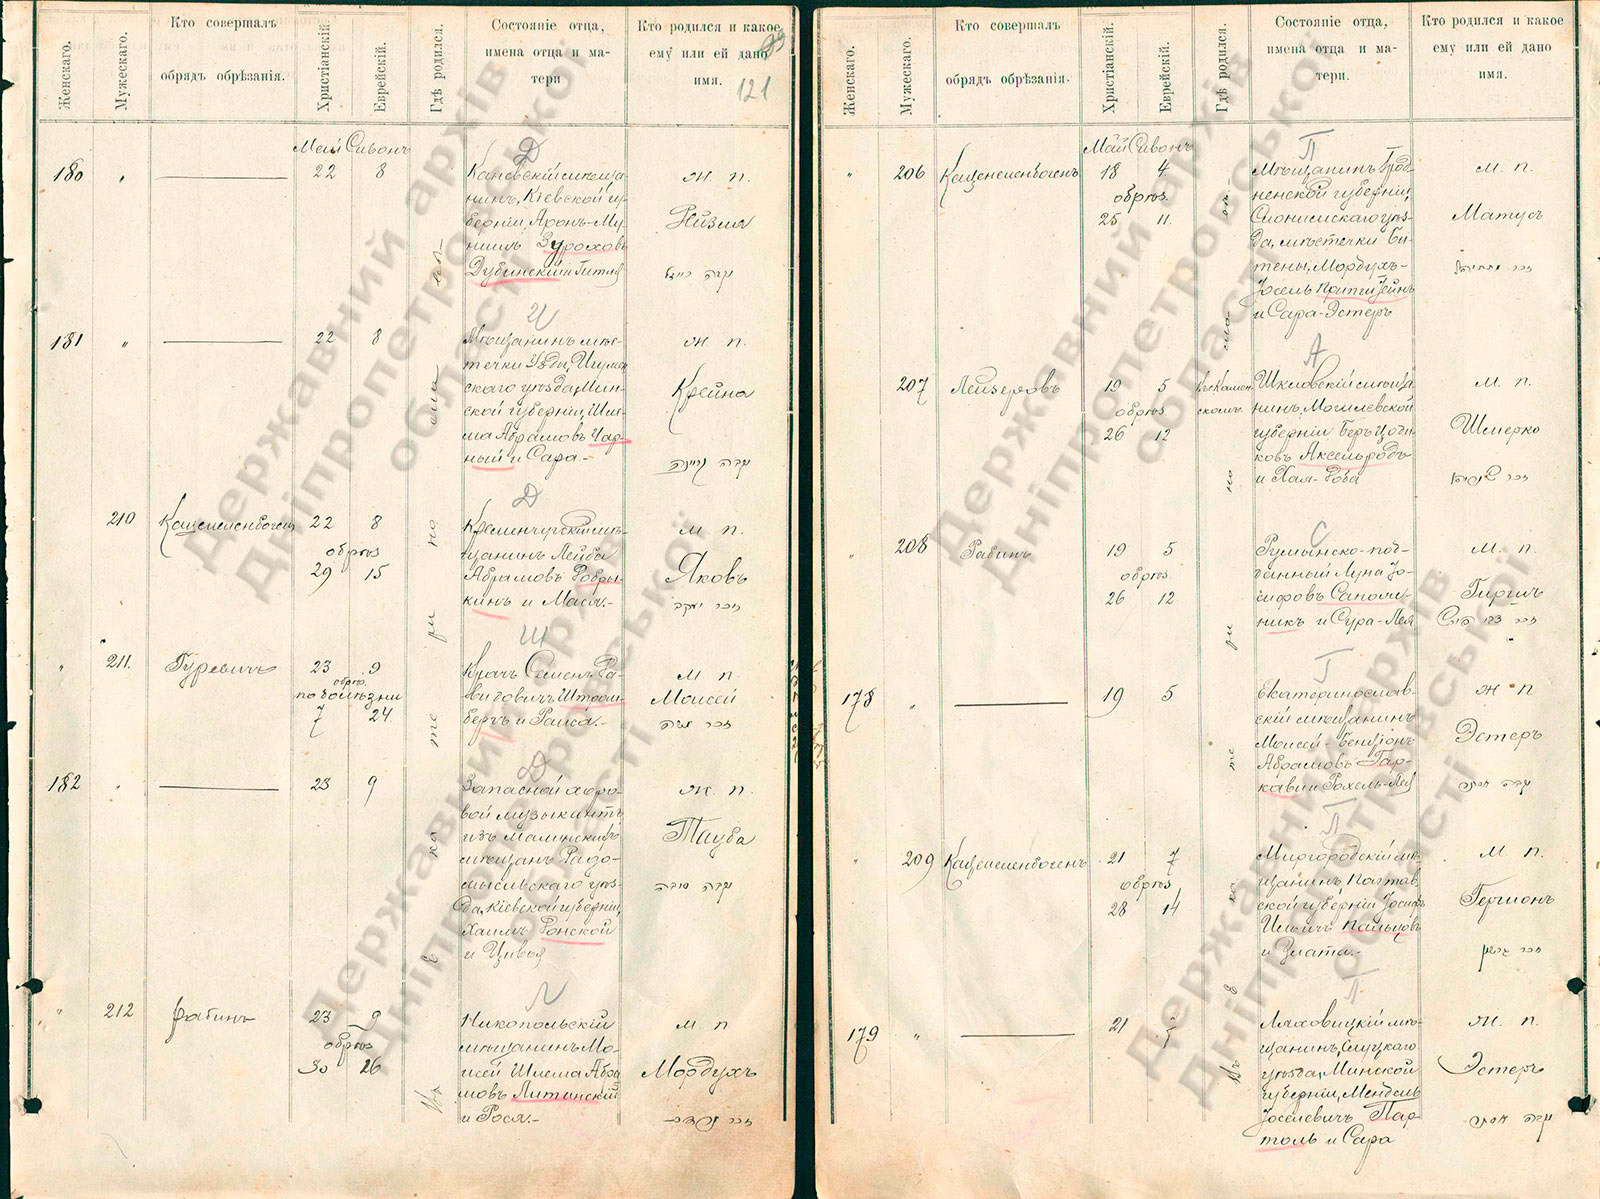 Женскаго.
Мужескаго.
Кто совершалъ
обрядъ обрѣзанія.
Христіанскій.
Еврейскій.
Гдѣ родился.
Состояніе отца,
имена отца и ма-
тери
Кто родился и какое
ему или ей дано
имя.
121
Май Сивонъ
180 " 22 8
Д
Каневскій мѣща
нинъ, Кіевской гу-
берніи, Аронъ-Му-
нишъ Зуроховъ
Дубинскій и Гитля
Ж. п.
Рейзля
181 " 22 8
И
Мѣщанинъ мѣс-
течки Узды, Игумен
скаго уѣзда, Мин-
ской губерніи, Шле-
ма Абрамовъ Чар-
ный и Сара-
Ж. п.
Крейна
210 Каценеленбоген 22 8
обрѣз
29 15
Д
Кременчугскій мѣ-
щанинъ Лейба
Абрамовъ Добры-
кинъ и Мася.-
М п.
Яковъ
זכר יעקב
" 211. Гуревичъ 23 9
обрѣз.
по болѣзни
7 24.
Ш
Врачъ Семенъ Да-
видовичъ Штром-
бергъ и Раиса.-
М п.
Моисей
זכר משה
182 " 23 9
Д
Запасной хоро-
вой музыкантъ
изъ Малинскихъ
мѣщанъ Радо-
мысльскаго уѣз-
да, Кіевской губерніи,
Хаимъ Донской
и Цивья
Ж. п.
Тауба
נקבה טובה
" 212 Рабинъ 23 9
обрѣз
30 26
Л
Никопольскій
мѣщанинъ Мо-
исей Шлема Абра
мовъ Литинскій
и Рося.-
М. п
Мордухъ
זכר מרדכי
Въ Екатеринославѣ
Женскаго.
Мужескаго.
Кто совершалъ
обрядъ обрѣзанія.
Христіанскій.
Еврейскій.
Гдѣ родился.
Состояніе отца,
имена отца и ма-
тери.
Кто родился и какое
ему или ей дано
имя.
Май Сивонъ
" 206 Каценеленбогенъ 18 4
обрѣз
25 11.
П
Мѣщанинъ Грод-
ненской губерніи,
Слонимскаго уѣз-
да, мѣстечки Би-
тены, Мордухъ-
Іосель
и Сара-Эстеръ
М. п.
Матусъ
207 Лейзеровъ 19 5
обрѣз
26 12
Въ Камен-
скомъ.
А
Шкловскій мѣща
нинъ, Могилевской
губерніи Беръ Цоди
ковъ Аксельродъ
и Хая-Доба
М. п.
Шмерко
" 208 Рабинъ 19 5
обрѣз
26 12
С
Румынско-под-
данный Луна Іо-
сифовъ Сапож-
никъ и Сура-Лея
М. п.
Гиршъ
זכר צבי הירש
178 " 19 5
Г
Екатеринослав-
скій мѣщанинъ
Моисей-Бенціонъ
Абрамовъ Гар-
кави и Рохель-Лея
Ж п
Эстеръ
נקבה אסתר
" 209 Каценеленбогенъ 21 7
обрѣз
28 14
П
Миргородскій мѣ-
щанинъ Полтав
ской губерніи Іосифъ
Ильичъ Пальцовъ
и Злата.-
М п.
Гершонъ
זכר גרשון
179 " 21 7
П
Ляховицкій мѣ-
щанинъ, Слуцкаго
уѣзда, Минской
губерніи, Мендель
Іоселевичъ Пар-
толь и Сара
Ж. п.
Эстеръ
נקבה אסתר
Въ Екатеринославѣ
Державний архів
Дніпропетровської
області